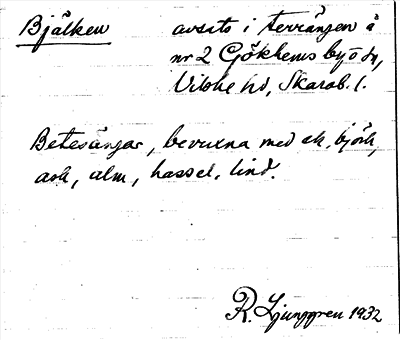 Bjälken avsats i terrängen å
nr 2 Gökhems by o dy,
Vilske hd, Skarab. l.
Betesängar, bevuxna med ek, björk,
ask, alm, hassel, lind.
R. Ljunggren 1932